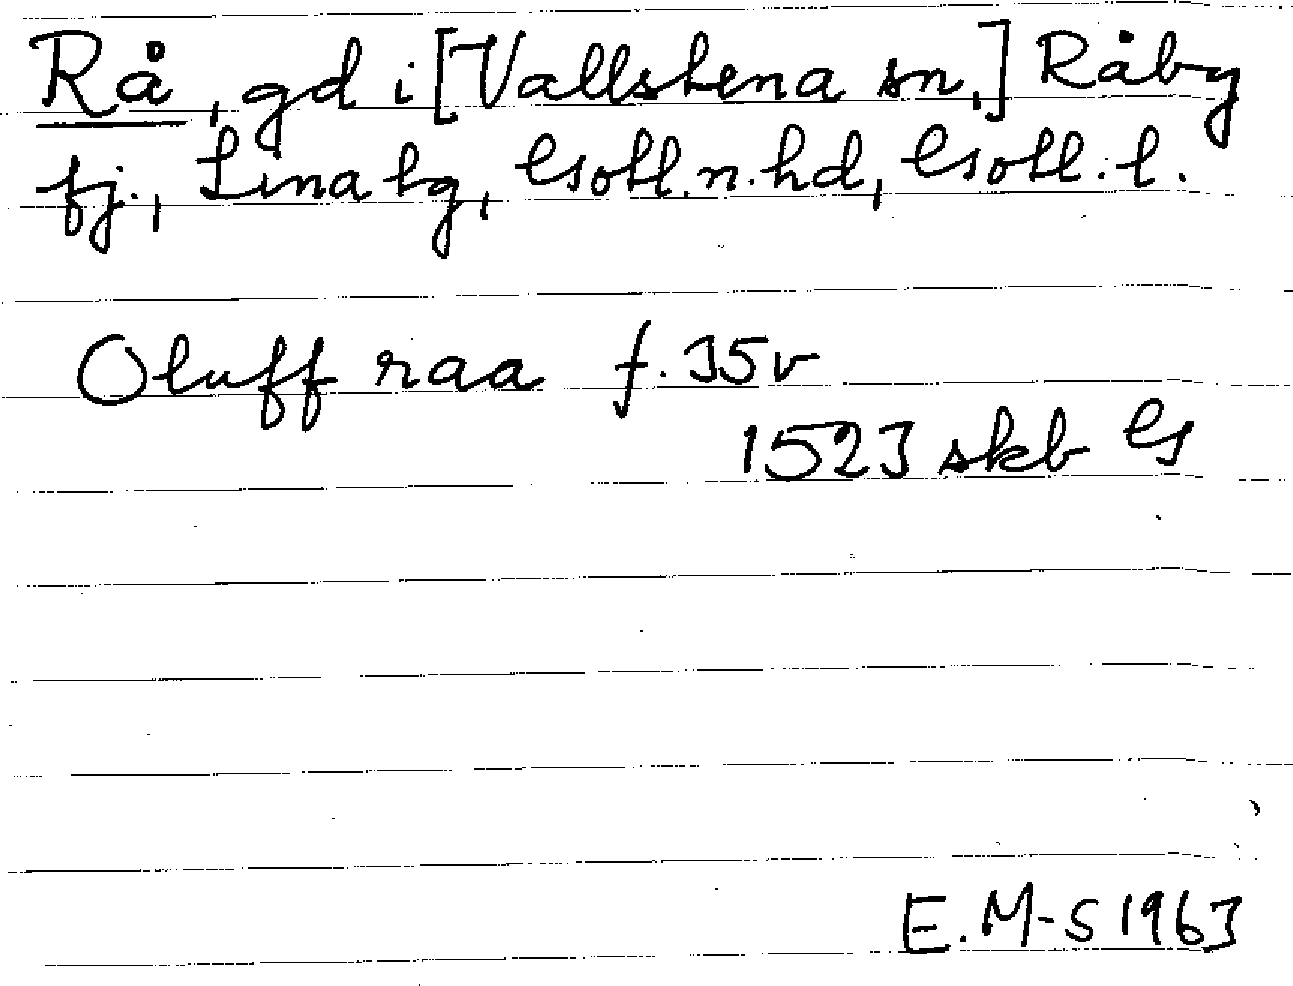 Rå, gd i [Vallstena sn,] Råby
fj., Lina tg, Gotl. n. hd, Gotl. l.
Oluff raa f. 35v
1523 skb G
E. M-S 1963